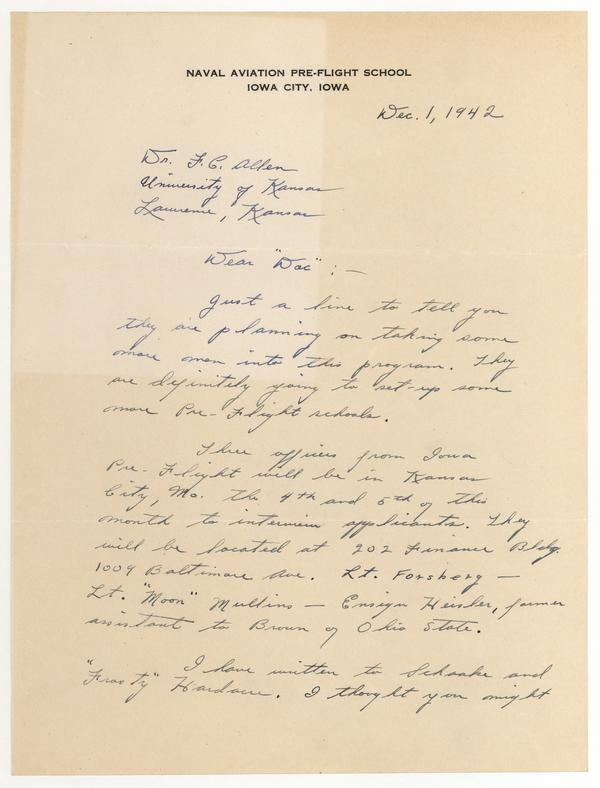 NAVAL AVIATION PRE-FLIGHT SCHOOL
IOWA CITY, IOWA
Dec. 1, 1942
Dr. F.C. Allen
University of Kansas
Lawrence, Kansas
Dear "Doc" : —
Just a line to tell you
they are planning on taking some
more men into this program. They
are definitely going to set-up some
more Pre-Flight schools.
Three officers from Iowa
Pre-Flight will be in Kansas
City, Mo. the 4th and 5th of this
month to interview applicants. They
will be located at 202 Finance Bldg.
1009 Baltimore Ave. Lt. Forsberg —
Lt. "Moon" Mullins — Ensign Heisler, former
assistant to Brown of Ohio State.
I have written to Schaake and
"Frosty" Hardacre. I thought you might